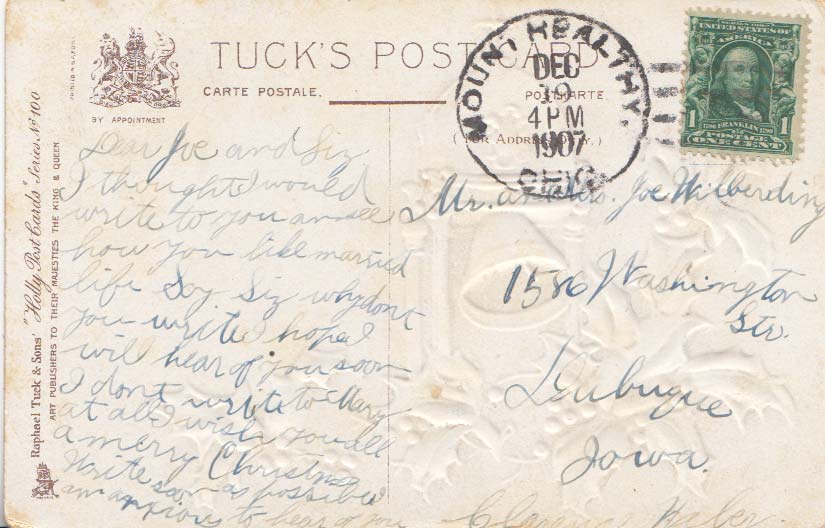 TUCK'S POST CARD
CARTE POSTALE.
POSTKARTE
BY APPOINTMENT
(FOR ADDRESS ONLY.)
MOUNT HEALTHY,
DEC
4 PM
1907
OHIO
SERIES 1902
UNITED STATES OF
AMERICA
1 1790 FRANKLIN 1790 1
POSTAGE
ONE CENT
Raphael Tuck & Sons' "Holly Post Cards" Series No 100
ART PUBLISHERS TO THEIR MAJESTIES THE KING & QUEEN
Dear Joe and Siz
I thought I would
write to you an see
how you like married
life Say Siz why dont
you write I hope I
will hear of you soon
I dont write to Mary
at all I wish you all
a merry Christmas
Write soon as possible
am anxious to hear of you
Mr. and Mrs. Joe Wilberding
1586 Washington
Str.
Dubuque
Iowa.